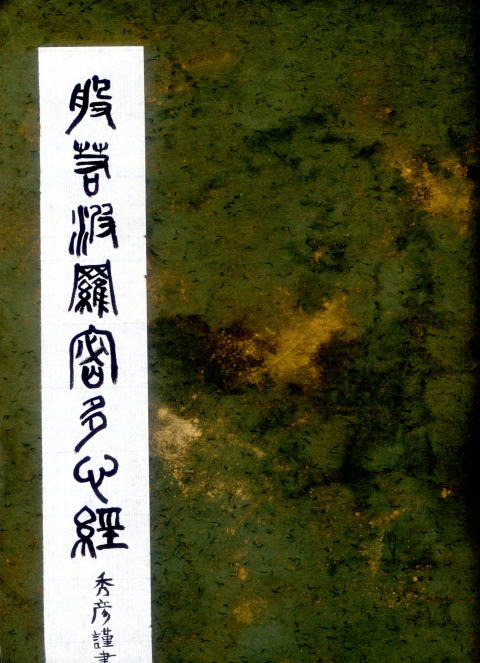 般若波羅密多心經
秀彦謹書